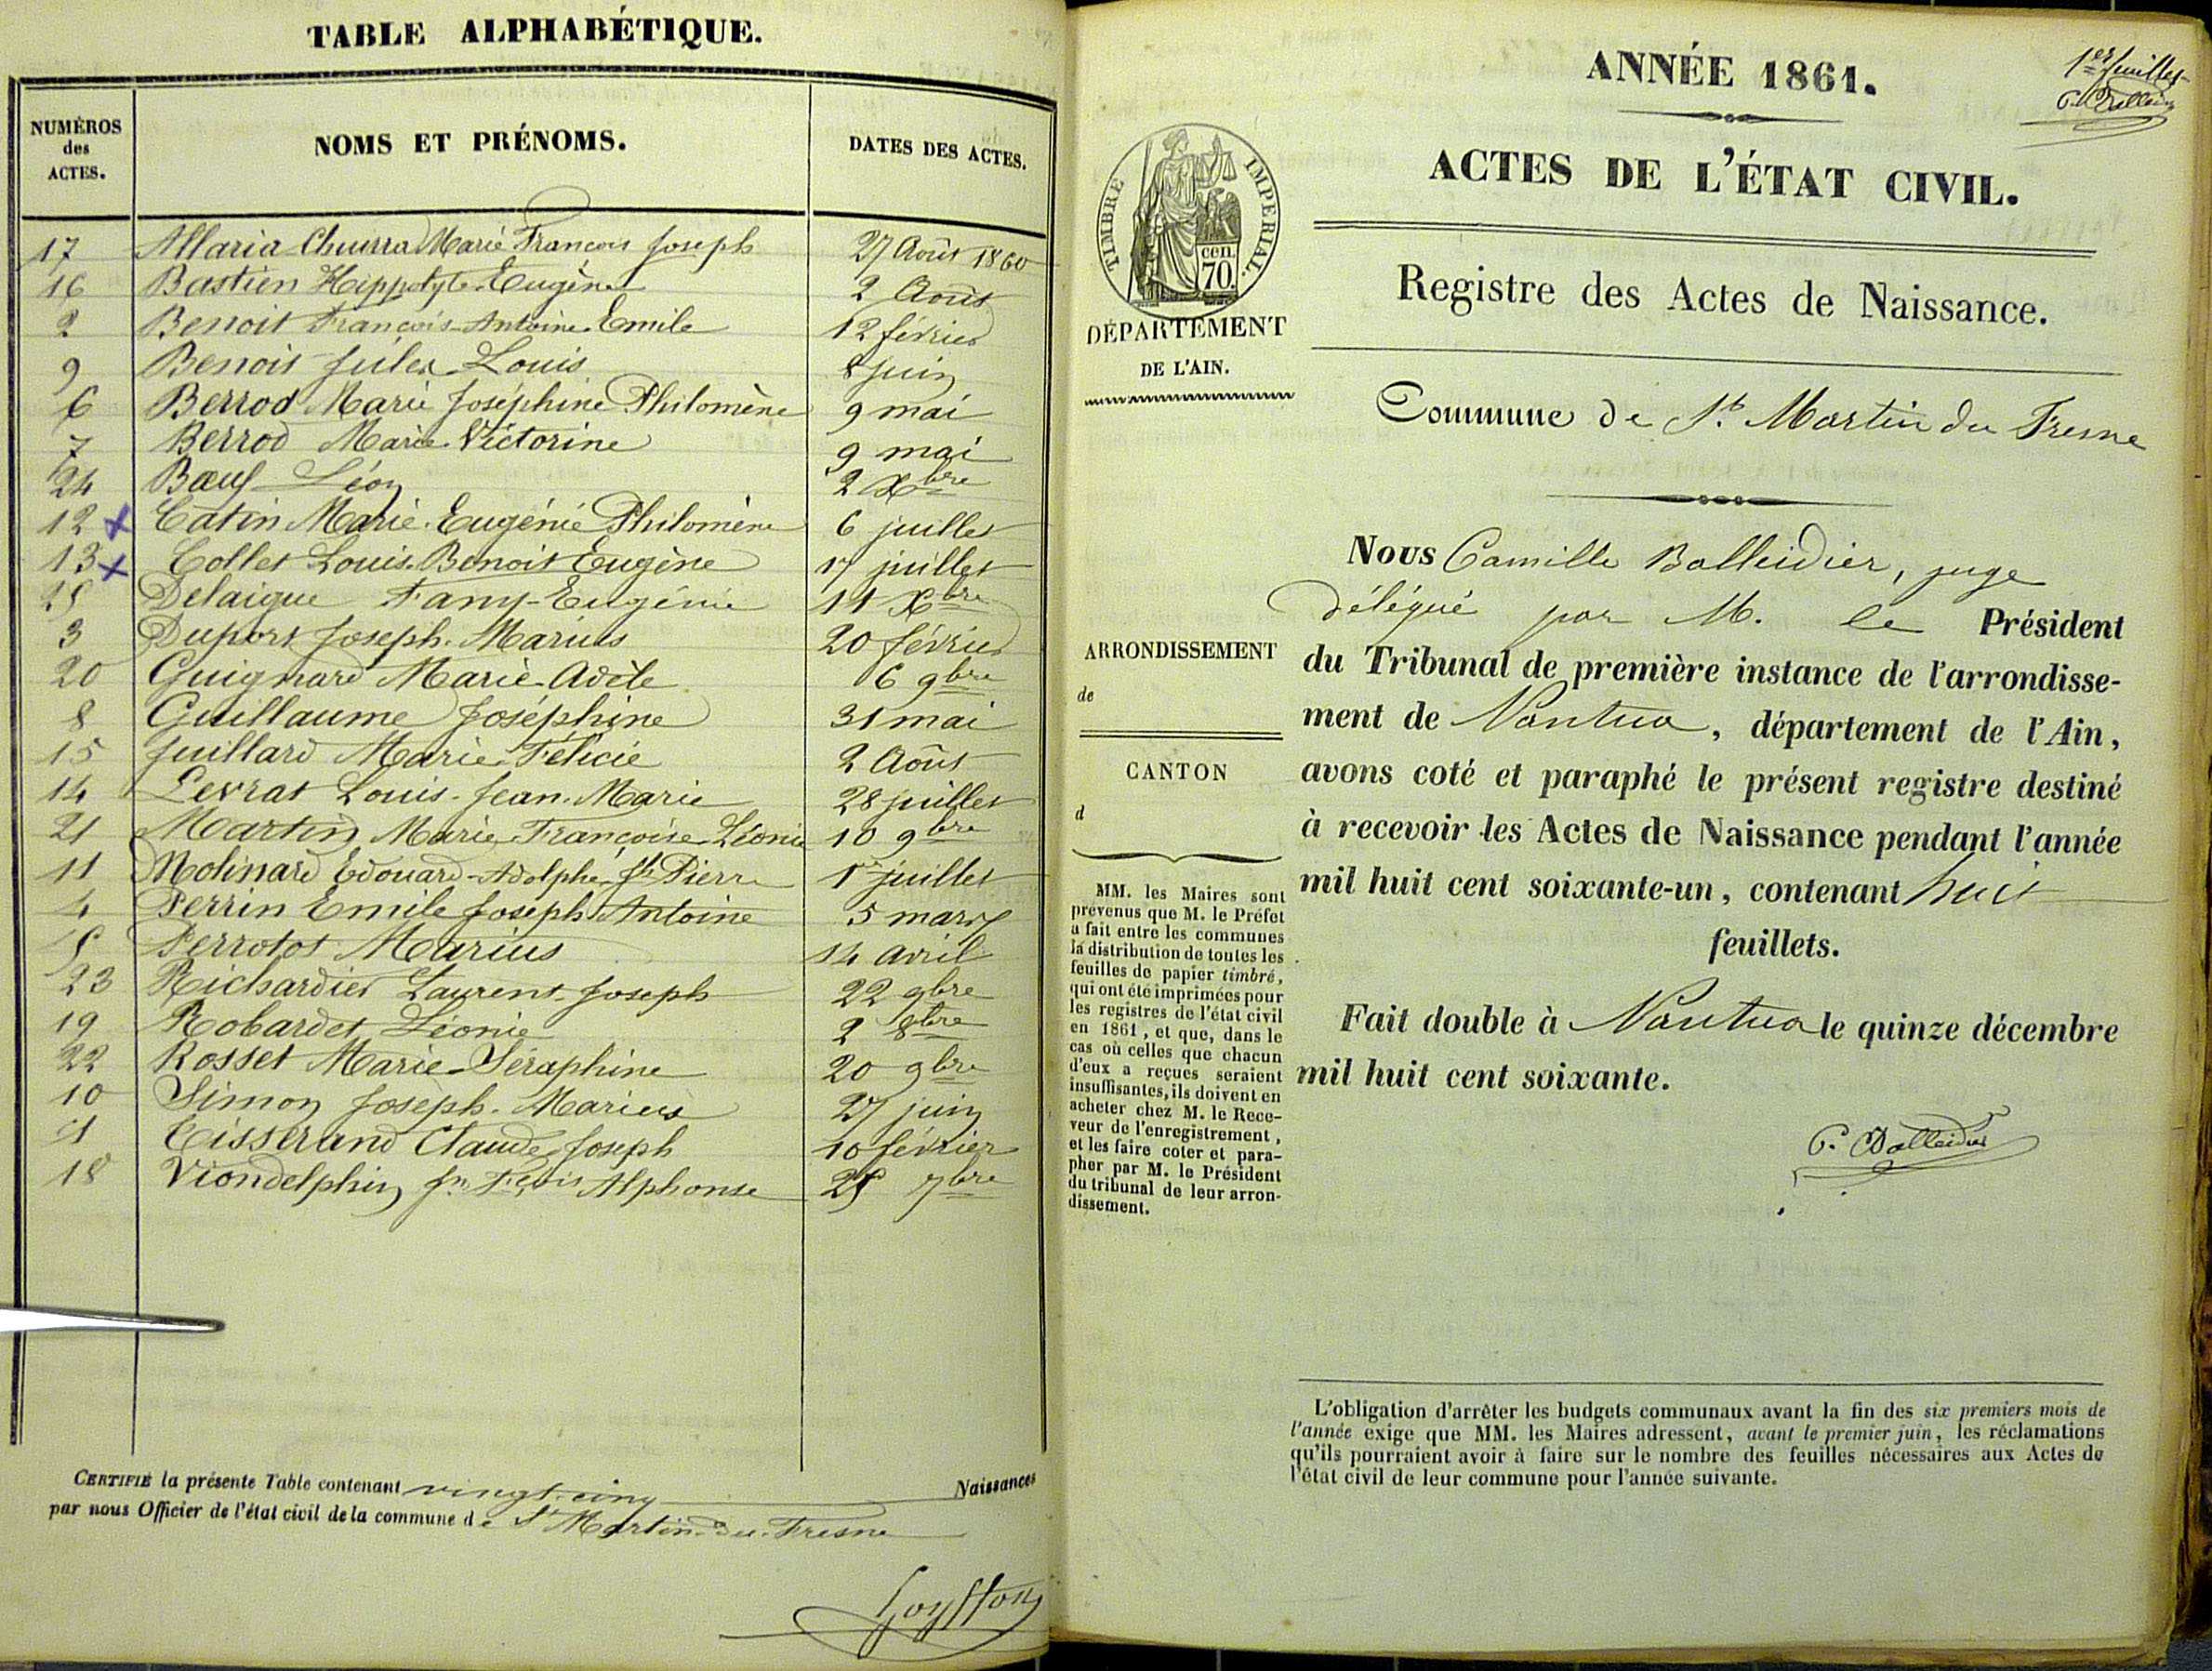 TABLE ALPHABÉTIQUE.
NUMÉROS des ACTES. NOMS ET PRÉNOMS. DATES DES ACTES.
17 Allaria-Churra Marie François Joseph 27 Août 1860
16 Bastien Hippolyte-Eugène 2 Août
2 Benoit François-Antoine-Emile 12 février
9 Benoit Jules-Louis 8 juin
6 Berrod Marie Joséphine Philomène 9 mai
7 Berrod Marie-Victorine 9 mai
24 Bœuf Léon 2 Xbre
12 x Catin Marie-Eugénie Philomène 6 juillet
13 x Collet Louis-Benoit Eugène 17 juillet
25 Delaigue Fany-Eugénie 11 Xbre
3 Duport Joseph-Marius 20 février
20 Guignard Marie-Adèle 6 9bre
8 Guillaume Joséphine 31 mai
15 Juillard Marie-Félicie 2 Août
14 Levrat Louis-Jean-Marie 28 juillet
21 Martin Marie Françoise Léonie 10 9bre
11 Molinard Edouard-Adolphe-Jh Pierre 1er juillet
4 Perrin Emile Joseph Antoine 5 mars
5 Perrotot Marius 14 avril
23 Richardier Laurent-Joseph 22 9bre
19 Robardet Léonie 2 8bre
22 Rosset Marie-Séraphine 20 9bre
10 Simon Joseph-Marius 27 juin
1 Tisserand Claude-Joseph 10 février
18 Viondelphin Jn Fçois Alphonse 25 7bre
CERTIFIÉ la présente Table contenant vingt-cinq Naissances
par nous Officier de l'état civil de la commune de St Martin-du-Fresne
Goyffon
1er feuillet
C. Balleidier
ANNÉE 1861.
ACTES DE L'ÉTAT CIVIL.
TIMBRE IMPÉRIAL.
70 cen.
DÉPARTEMENT
DE L'AIN.
Registre des Actes de Naissance.
Commune de St. Martin du Fresne
ARRONDISSEMENT
de
CANTON
d
MM. les Maires sont
prévenus que M. le Préfet
a fait entre les communes
la distribution de toutes les
feuilles de papier timbré,
qui ont été imprimées pour
les registres de l'état civil
en 1861, et que, dans le
cas où celles que chacun
d'eux a reçues seraient
insuffisantes, ils doivent en
acheter chez M. le Rece-
veur de l'enregistrement,
et les faire coter et para-
pher par M. le Président
du tribunal de leur arron-
dissement.
Nous Camille Balleidier, juge
délégué par M. le Président
du Tribunal de première instance de l'arrondisse-
ment de Nantua, département de l'Ain,
avons coté et paraphé le présent registre destiné
à recevoir les Actes de Naissance pendant l'année
mil huit cent soixante-un, contenant huit
feuillets.
Fait double à Nantua le quinze décembre
mil huit cent soixante.
C. Balleidier
L'obligation d'arrêter les budgets communaux avant la fin des six premiers mois de
l'année exige que MM. les Maires adressent, avant le premier juin, les réclamations
qu'ils pourraient avoir à faire sur le nombre des feuilles nécessaires aux Actes de
l'état civil de leur commune pour l'année suivante.